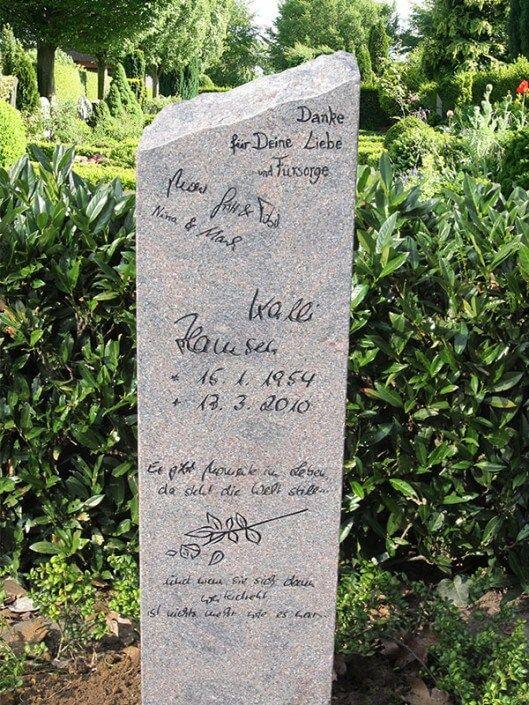 Danke
für Deine Liebe
und Fürsorge
Nina & Mark
Walli
* 16. 1. 1954
+ 13. 3. 2010
Es gibt Momente im Leben,
da steht die Welt still...
und wenn sie sich dann
weiterdreht
ist nichts mehr wie es war...